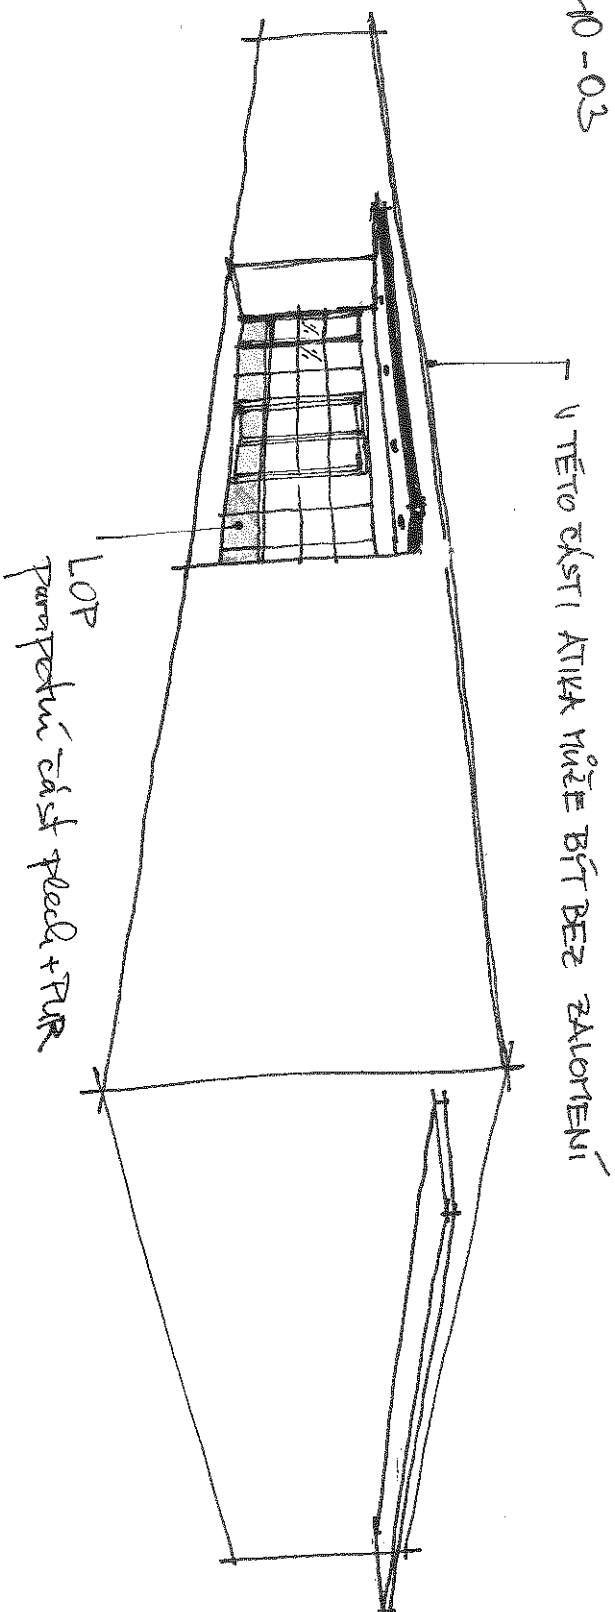 10-03
V TÉTO ČÁSTI ATIKA MŮŽE BÝT BEZ ZALOMENÍ
LOP
parapetní část plech + PUR